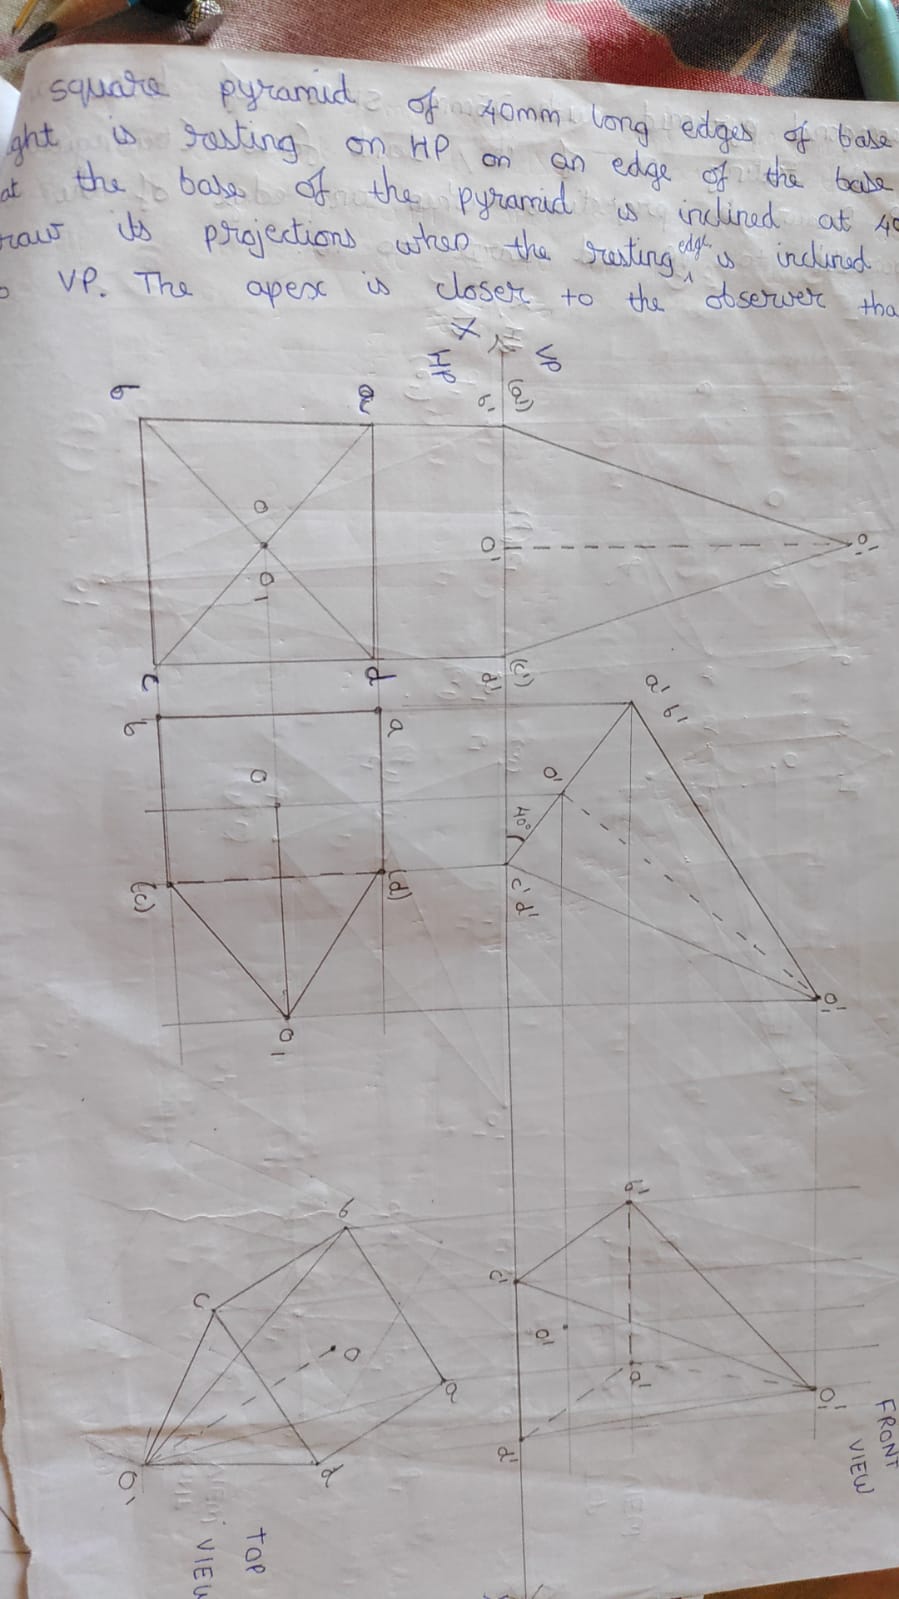 square pyramid of 40mm long edges of base
ght is resting on HP on an edge of the base
at the base of the pyramid is inclined at 40
raw its projections when the resting edge is inclined
VP. The apex is closer to the observer tha
X
VP
HP
o₁'
(a')
b'
o'
(c')
d'
a
d
o
o₁
b
c
o₁'
a' b'
o'
40°
c' d'
a
(d)
o
o₁
b
(c)
FRONT
VIEW
o₁'
b'
a'
o'
c'
d'
a
b
o
d
c
o₁
TOP
VIEW